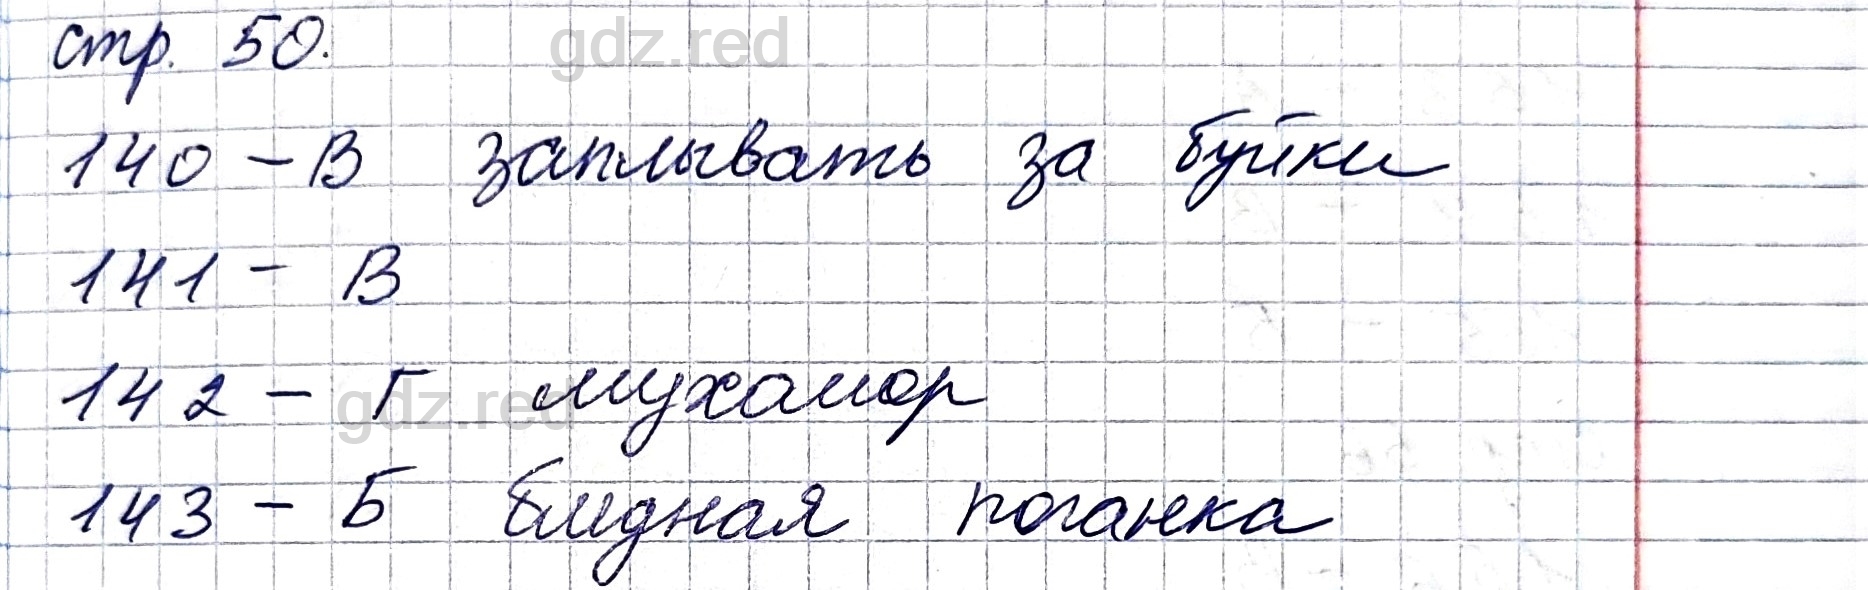 стр. 50.
gdz.red
140 – В заплывать за буйки
141 – В
142 – Г мухомор
gdz.red
143 – Б бледная поганка